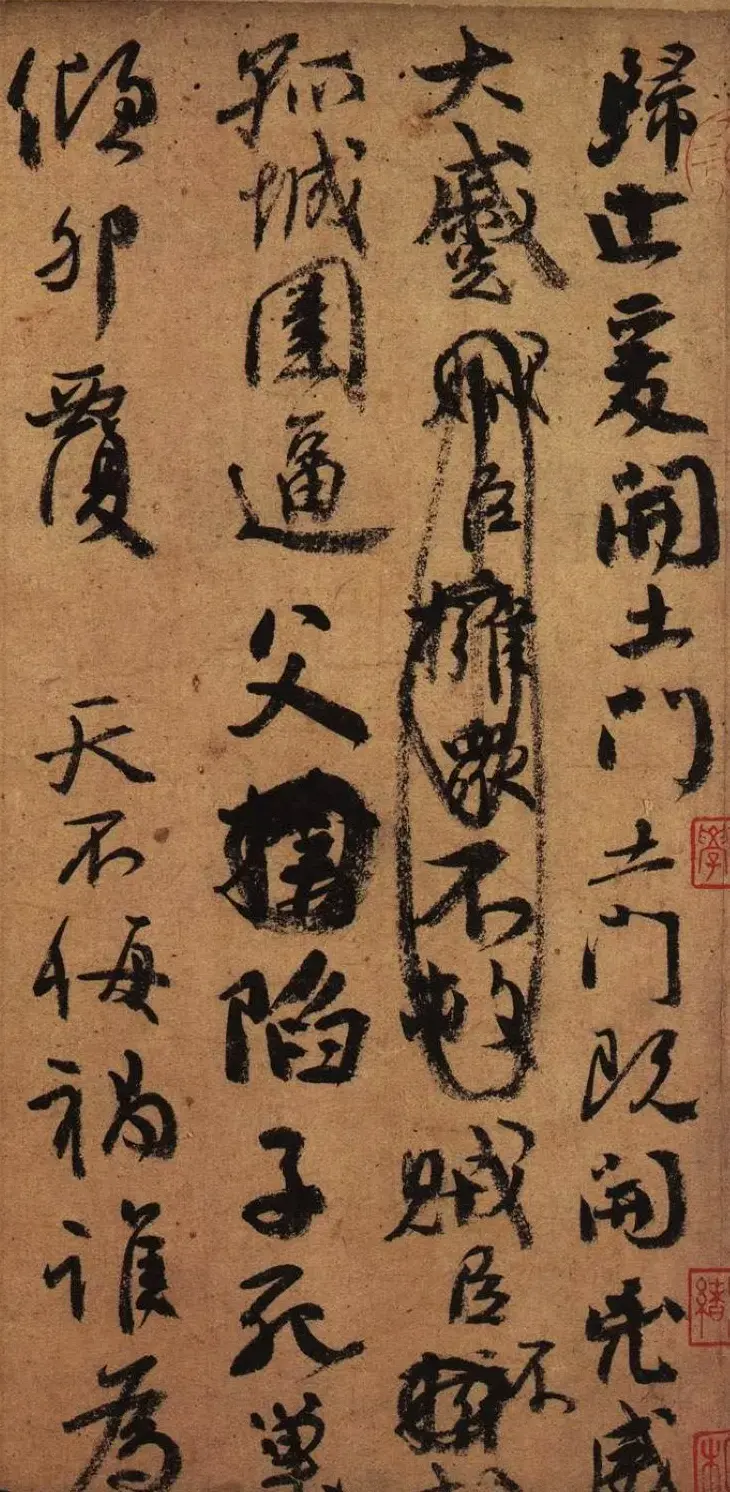 歸止爰開土門土門既開兇威
大蹙賊臣擁衆不救賊臣不
孤城圍逼父陷子死巢
傾卵覆天不悔禍誰為